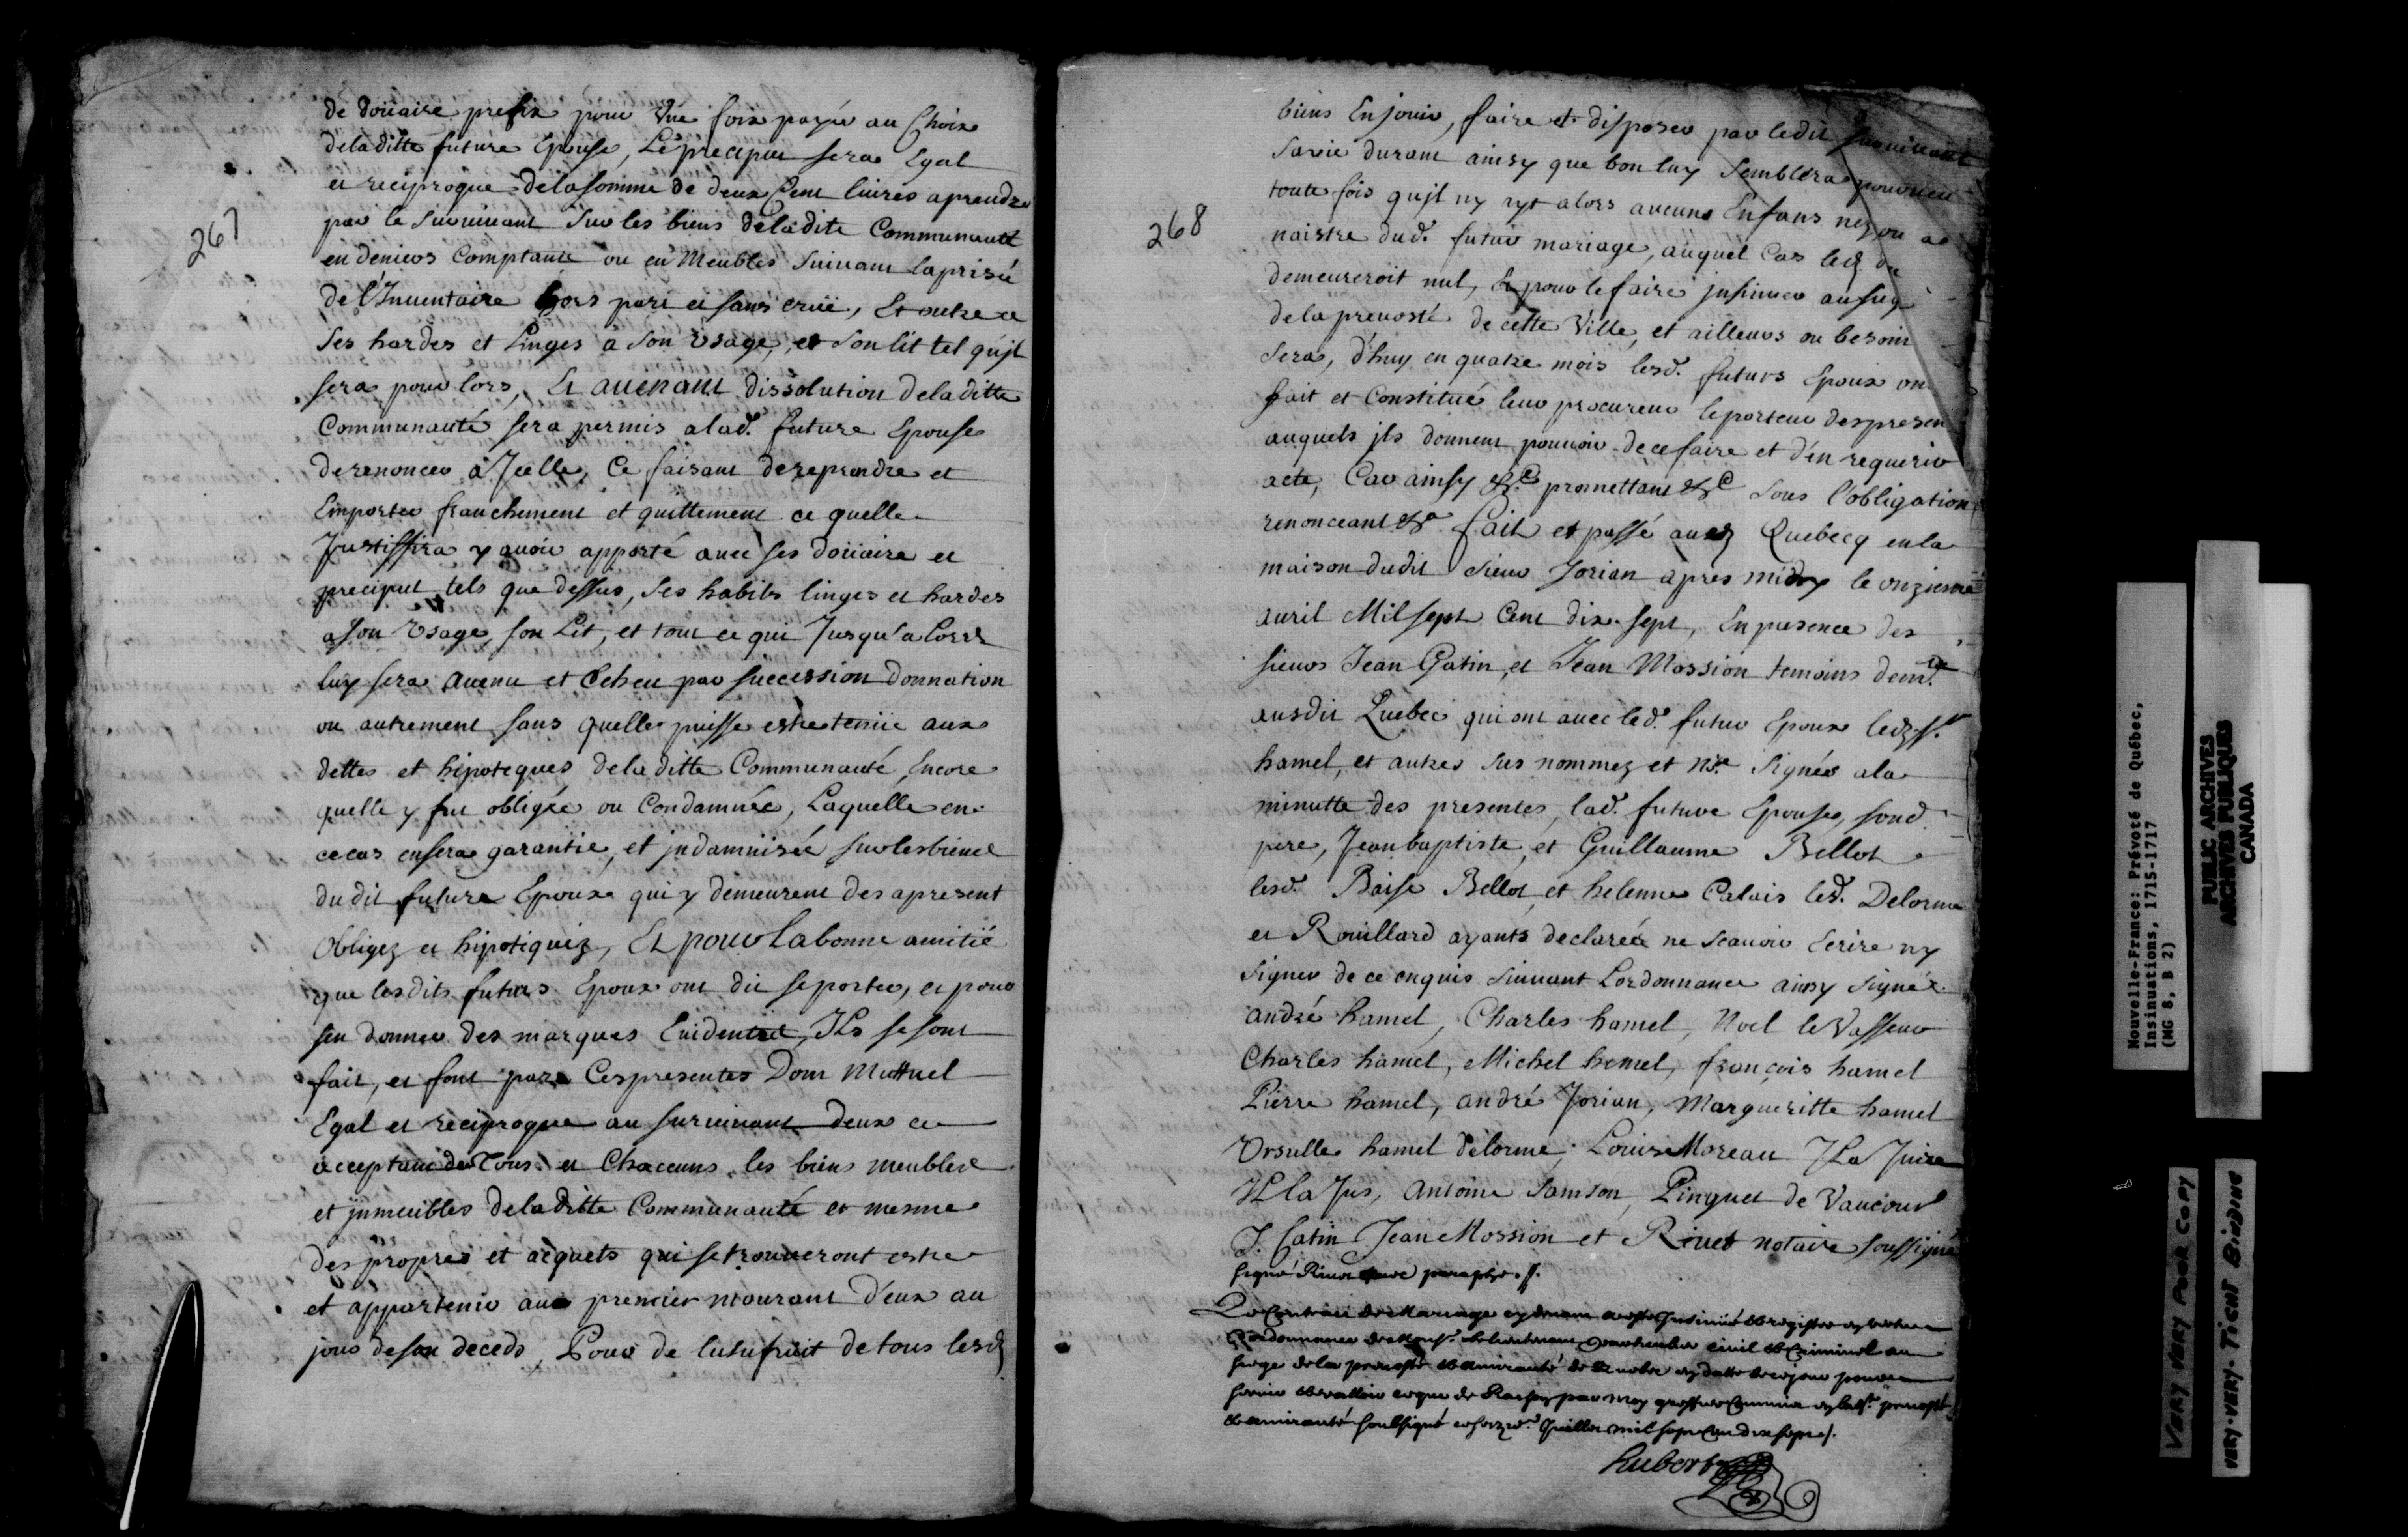 267
de doüaire prefix pour Vne foix payéé au Choix
deladitte future Epouse, Le preciput sera Egal
et reciproque delasomme de deux Cent liures aprendre
par le Suruiuant Sur les biens deladite Communauté
en deniers Comptants ou en Meubles Suiuant laprisée
de l'Inuentaire hors part et sans crüe, Et outre ce
Ses hardes et Linges a Son Vsage, et Son lit tel qu'jl
sera pour lors, Et auenant dissolution deladitte
Communauté sera permis alad. future Epouse
derenoncer a Jcelle, Ce faisant dereprendre et
Emporter franchement et quittement ce quelle
Justiffira y auoir apporté auec ses doüaire et
preciput tels que dessus, Ses habits linges et hardes
a Son Vsage, son Lit, et tout ce qui Jusqu'a lors
luy sera auenu et Echeu par succession donnation
ou autrement sans quelle puisse estre tenüe aux
dettes et hipoteques deladitte Communauté Encore
quelle y fut obligée ou Condamnée, Laquelle en
cecas ensera garantie, et jndamnisée surlesbiens
dudit future Epoux qui y demeurent des apresent
Obligez et hipotiquéz, Et pour labonne amitié
que lesdits futurs Epoux ont dit seporter, et pour
sen donner des marques Euidentes, JLs sesont
fait, et font par Cespresentes Don Muttuel
Egal et reciproque au suruiuant deux ce
acceptant de Tous et Chaccuns les biens meubles
et jmmeubles deladitte Communauté et mesme
des propres et acquets qui setrouueront estre
et appartenir au premier mourant d'eux au
jour deson deceds, Pour de lusufruit de tous lesd
268
biens Enjouir, faire et disposer par ledit Suruiuant
Savie durant ainsy que bon luy Semblera pourueu
toute fois qu'jl ny ayt alors aucuns Enfans nez ou a
naistre dud. futur mariage, auquel Cas led
demeureroit nul, Et pour lefaire jnsinuer augreffe
delapreuosté de cette Ville, et ailleurs ou besoin
Sera, d'huy en quatre mois lesd. futurs Epoux ont
fait et Constitué leur procureur leporteur despresentes
auquels jls donnent pouuoir decefaire et d'en requerir
acte, Car ainsy &c promettant &c Sous l'obligation
renonceant &c fait et passé aud Quebecq enla
maison dudit Sieur Jorian apres midy le onzieme
auril Mil sept Cent dix sept, En presence des
sieurs Jean Gatin, et Jean Mossion temoins demt
ausdit Quebec qui ont auec led. futur Epoux led Sr.
hamel, et autres Sus nommez et nre Signés ala
minutte des presentes, lad. future Epouse, sond
pere, Jeanbaptiste, et Guillaume Bellot
lesd. Baise Bellot, et helenne Calais led. Delorme
et Rouillard ayants declarée ne scauoir Ecrire ny
Signer de ce enquis Suiuant Lordonnance ainsy Signé
andré hamel, Charles hamel, Noel le Vasseur
Charles hamel, Michel hemel, françois hamel
Pierre hamel, andré Jorian, Margueritte hamel
Vrsulle hamel delorme, Louise Moreau
antoine Samson, Pinguet de Vaucour
J. Gatin Jean Mossion et Riuet notaire soussigné
signé Riuet auec paraphe ./.
Le Contract de Mariage cy deuant a esté Insinüé et registré en vertu
Lordonnance de Monsr. le lieutenant Particulier ciuil et Criminel au
siege dela preuosté et amirauté de Quebec en datte de cejour pour
seruir et valloir ceque de Raison par moy greffier Commis en lad. preuosté
et amirauté soussigné ce Juillet mil sept Cent dix sept ./.
Hubert
Nouvelle-France: Prévoté de Québec,
Insinuations, 1715-1717
(MG 8, B 2)
PUBLIC ARCHIVES
ARCHIVES PUBLIQUES
CANADA
VERY VERY POOR COPY
VERY-VERY TIGHT BINDING